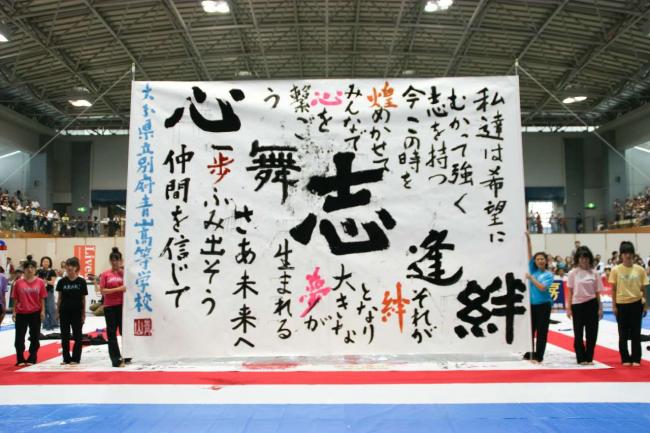 私達は希望に
むかって強く
志を持つ
今この時を
煌めかせて
みんなで
心を
繋ごう
志
逢
それが
絆
絆
となり
大きな
夢が
生まれる
舞
さあ未来へ
心
一歩ふみ出そう
仲間を信じて
大分県立別府青山高等学校
Live